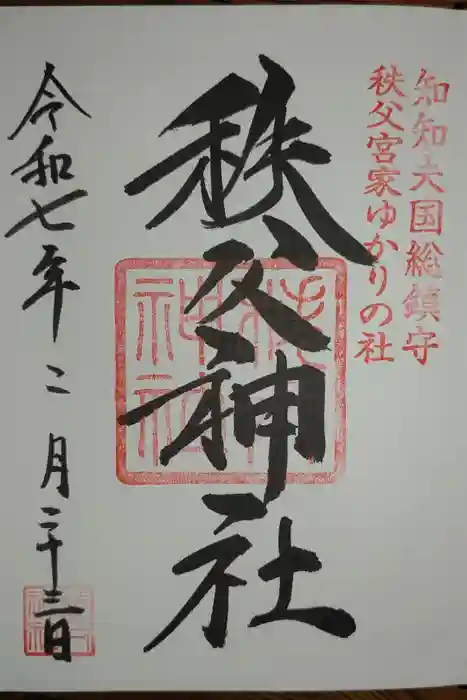 知知夫国総鎮守
秩父宮家ゆかりの社
秩父神社
令和七年二月二十三日